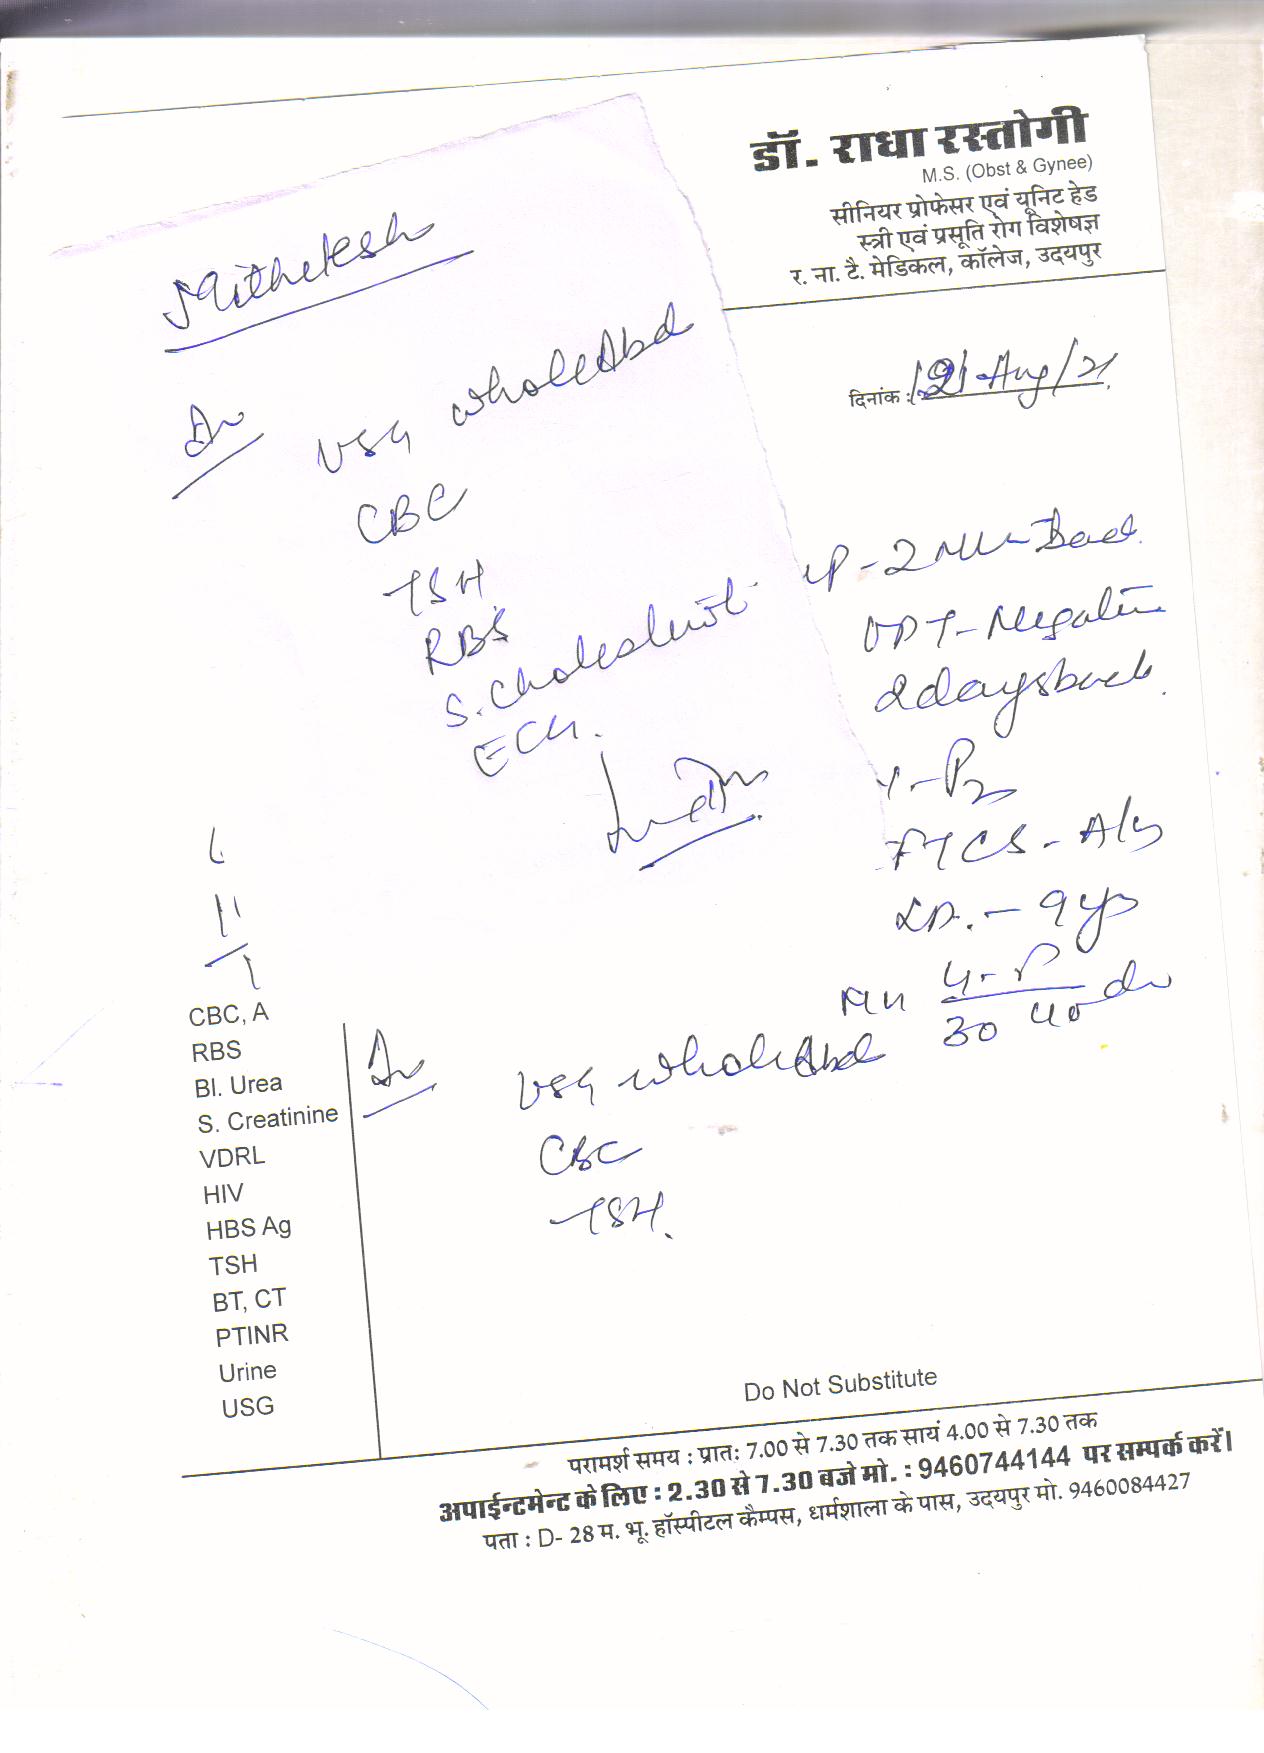 डॉ. राधा रस्तोगी
M.S. (Obst & Gynee)
सीनियर प्रोफेसर एवं यूनिट हेड
स्त्री एवं प्रसूति रोग विशेषज्ञ
र. ना. टै. मेडिकल, कॉलेज, उदयपुर
दिनांक : Aug/21
Mithelesh
USG whole Abd
CBC
TSH
RBS
S. Cholesterol
ECG.
UPT - Negative
2 days back
FTCS - A/S
LD. - 9 ys
30 40
USG whole Abd
CBC
TSH.
CBC, A
RBS
Bl. Urea
S. Creatinine
VDRL
HIV
HBS Ag
TSH
BT, CT
PTINR
Urine
USG
Do Not Substitute
परामर्श समय : प्रातः 7.00 से 7.30 तक सायं 4.00 से 7.30 तक
अपाईन्टमेन्ट के लिए : 2.30 से 7.30 बजे मो. : 9460744144 पर सम्पर्क करें।
पता : D- 28 म. भू. हॉस्पीटल कैम्पस, धर्मशाला के पास, उदयपुर मो. 9460084427